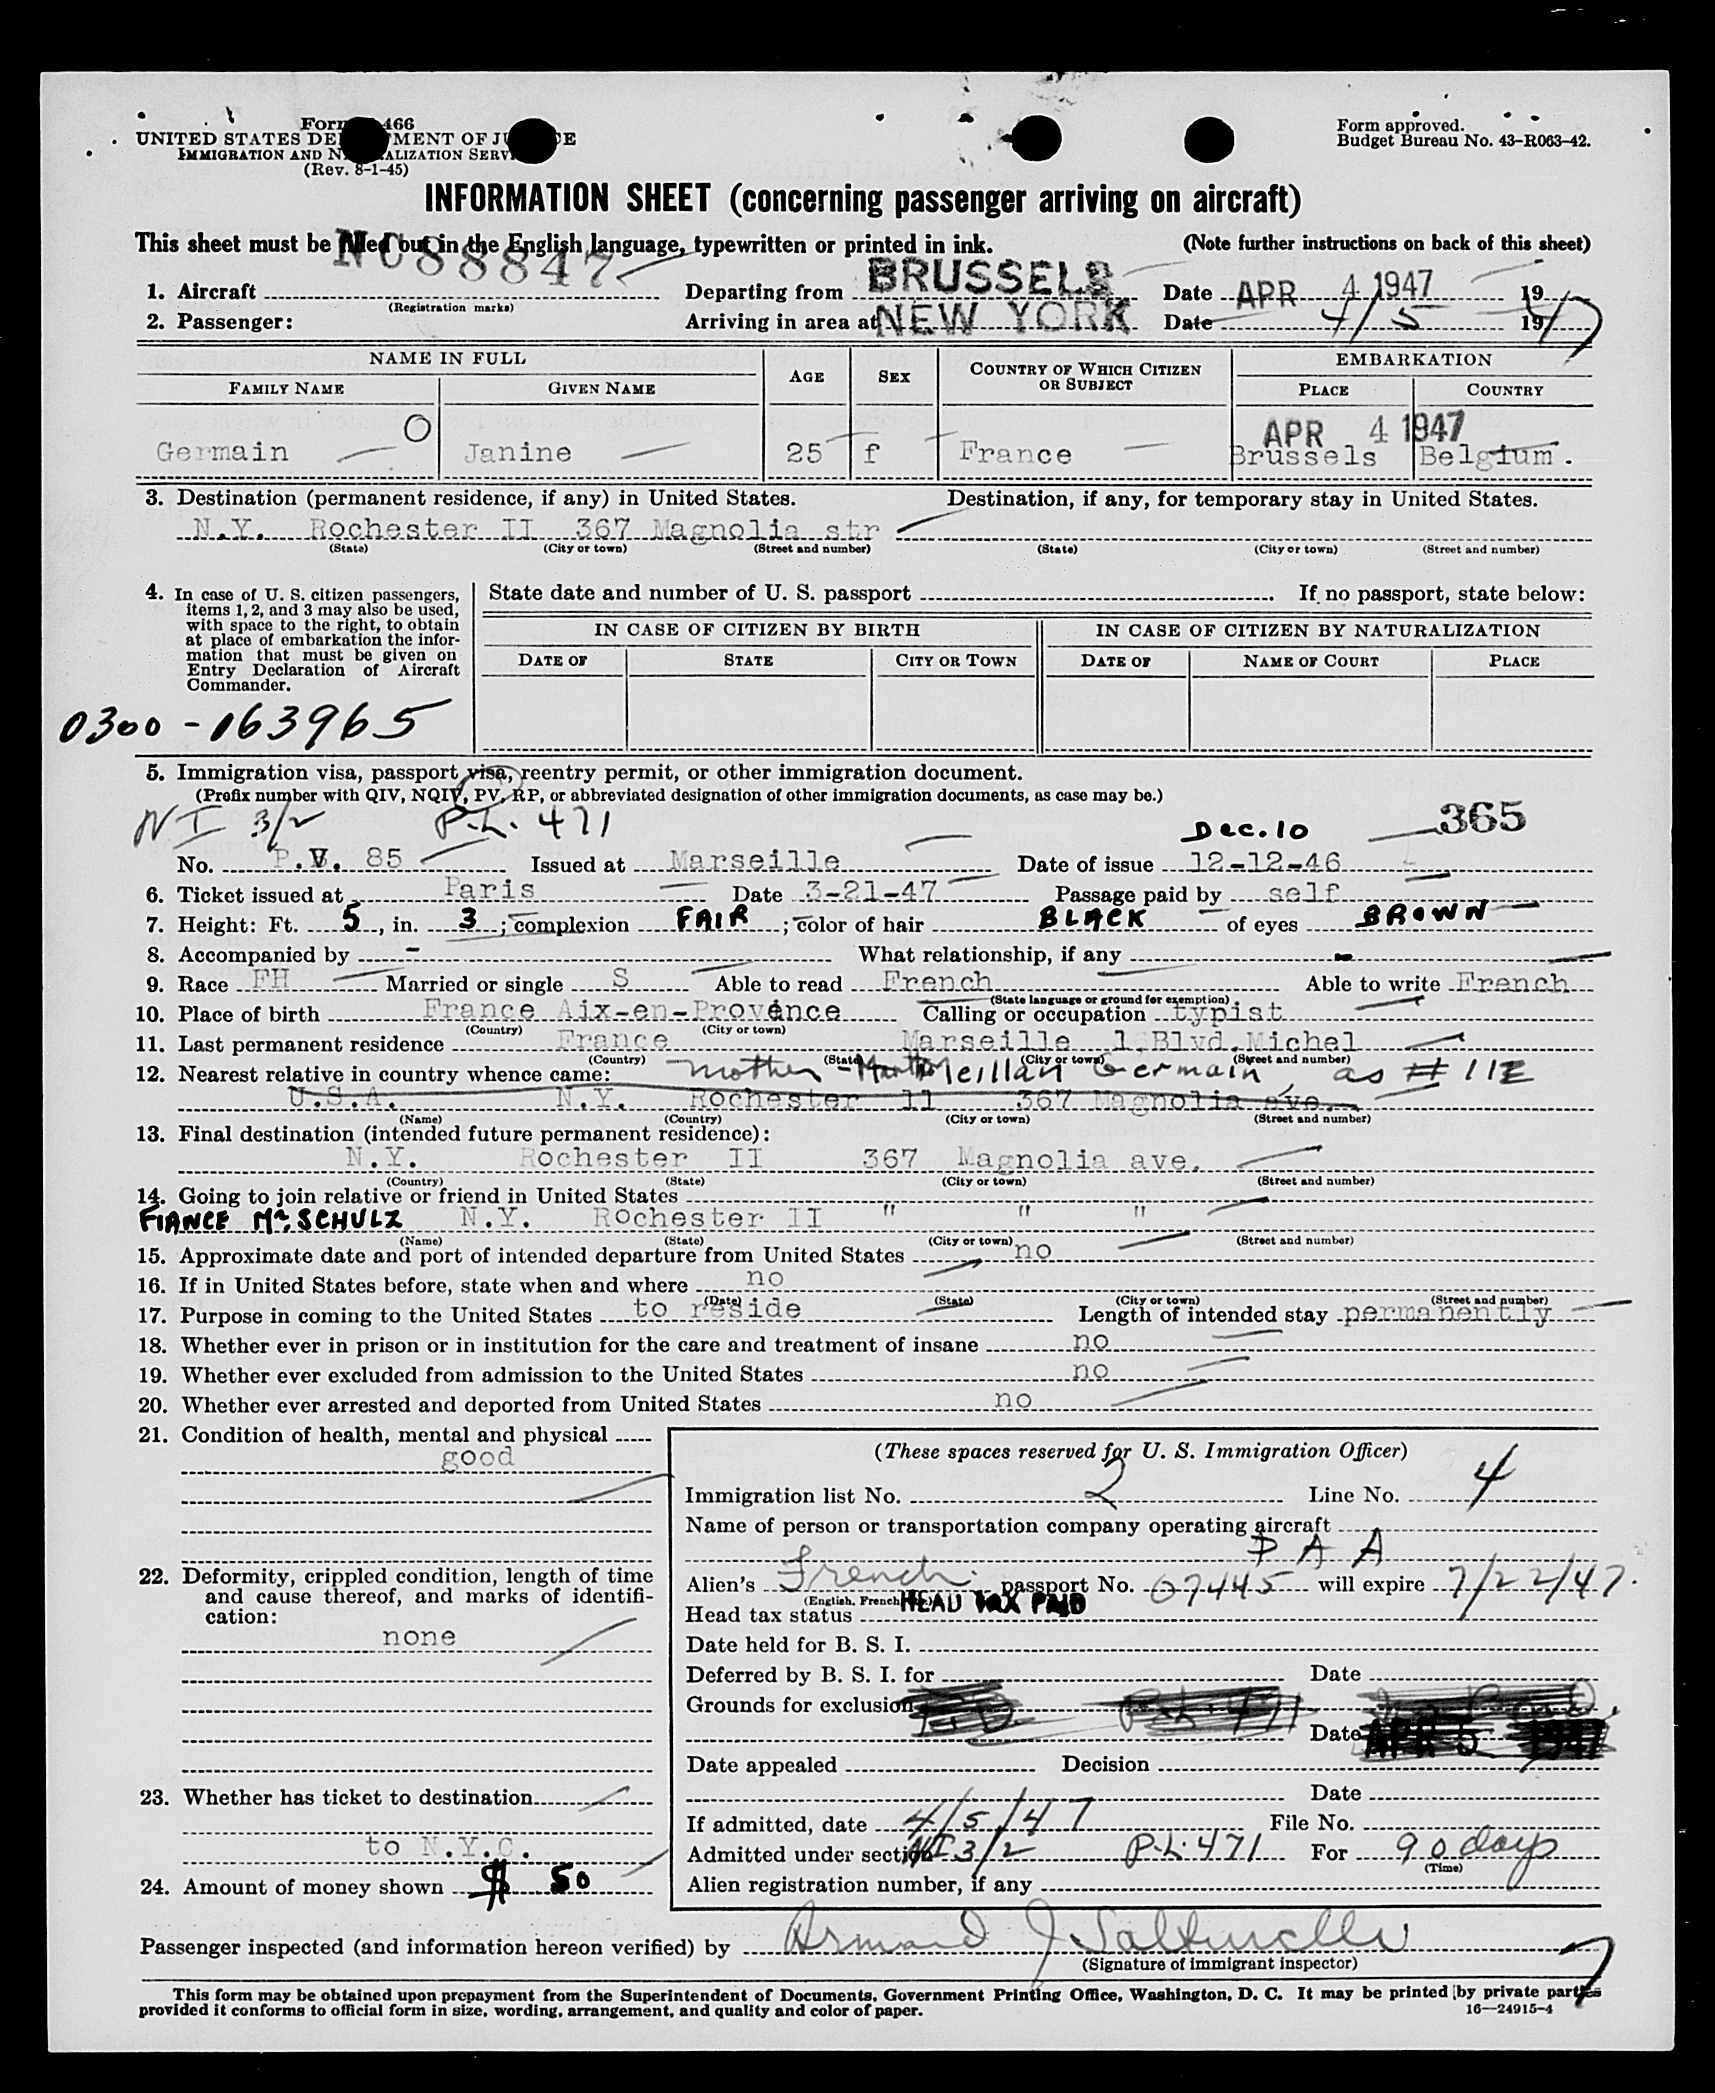 Form 466
UNITED STATES DEPARTMENT OF JUSTICE
IMMIGRATION AND NATURALIZATION SERVICE
(Rev. 8-1-45)
Form approved.
Budget Bureau No. 43-R063-42.
INFORMATION SHEET (concerning passenger arriving on aircraft)
This sheet must be filled out in the English language, typewritten or printed in ink. (Note further instructions on back of this sheet)
1. Aircraft NC88847 Departing from BRUSSELS Date APR 4 1947 19
(Registration marks)
2. Passenger: Arriving in area at NEW YORK Date 4/5 1947
NAME IN FULL AGE SEX COUNTRY OF WHICH CITIZEN OR SUBJECT EMBARKATION
FAMILY NAME GIVEN NAME PLACE COUNTRY
O APR 4 1947
Germain Janine 25 f France Brussels Belgium.
3. Destination (permanent residence, if any) in United States. Destination, if any, for temporary stay in United States.
N.Y. Rochester II 367 Magnolia str
(State) (City or town) (Street and number) (State) (City or town) (Street and number)
4. In case of U. S. citizen passengers, items 1, 2, and 3 may also be used, with space to the right, to obtain at place of embarkation the information that must be given on Entry Declaration of Aircraft Commander.
State date and number of U. S. passport If no passport, state below:
IN CASE OF CITIZEN BY BIRTH IN CASE OF CITIZEN BY NATURALIZATION
DATE OF STATE CITY OR TOWN DATE OF NAME OF COURT PLACE
0300-163965
5. Immigration visa, passport visa, reentry permit, or other immigration document.
(Prefix number with QIV, NQIV, PV, RP, or abbreviated designation of other immigration documents, as case may be.)
NI 3/2 P.L. 471 Dec. 10 365
No. P.V. 85 Issued at Marseille Date of issue 12-12-46
6. Ticket issued at Paris Date 3-21-47 Passage paid by self
7. Height: Ft. 5, in. 3; complexion FAIR; color of hair BLACK of eyes BROWN
8. Accompanied by - What relationship, if any -
9. Race FH Married or single S Able to read French Able to write French
(State language or ground for exemption)
10. Place of birth France Aix-en-Provence Calling or occupation typist
(Country) (City or town)
11. Last permanent residence France Marseille 1 Blvd.Michel
(Country) (State) (City or town) (Street and number)
12. Nearest relative in country whence came: mother - Meillan Germain, as # 11E
U.S.A. N.Y. Rochester 11 367 Magnolia ave.
(Name) (Country) (City or town) (Street and number)
13. Final destination (intended future permanent residence):
N.Y. Rochester II 367 Magnolia ave.
(Country) (State) (City or town) (Street and number)
14. Going to join relative or friend in United States
FIANCE Mr. SCHULZ N.Y. Rochester II " " "
(Name) (State) (City or town) (Street and number)
15. Approximate date and port of intended departure from United States no
16. If in United States before, state when and where no
(Date) (State) (City or town) (Street and number)
17. Purpose in coming to the United States to reside Length of intended stay permanently
18. Whether ever in prison or in institution for the care and treatment of insane no
19. Whether ever excluded from admission to the United States no
20. Whether ever arrested and deported from United States no
21. Condition of health, mental and physical
good
22. Deformity, crippled condition, length of time and cause thereof, and marks of identification:
none
23. Whether has ticket to destination
to N.Y.C.
24. Amount of money shown $ 50
(These spaces reserved for U. S. Immigration Officer)
Immigration list No. 2 Line No. 4
Name of person or transportation company operating aircraft
P A A
Alien's French passport No. 07445 will expire 7/22/47.
(English, French, etc.)
Head tax status HEAD TAX PAID
Date held for B. S. I.
Deferred by B. S. I. for Date
Grounds for exclusion P.L. 471
Date APR 5 1947
Date appealed Decision
Date
If admitted, date 4/5/47 File No.
Admitted under section NI 3/2 P.L. 471 For 90 days
(Time)
Alien registration number, if any
Passenger inspected (and information hereon verified) by Armand J
(Signature of immigrant inspector)
This form may be obtained upon prepayment from the Superintendent of Documents, Government Printing Office, Washington, D. C. It may be printed by private parties
provided it conforms to official form in size, wording, arrangement, and quality and color of paper. 16—24915-4